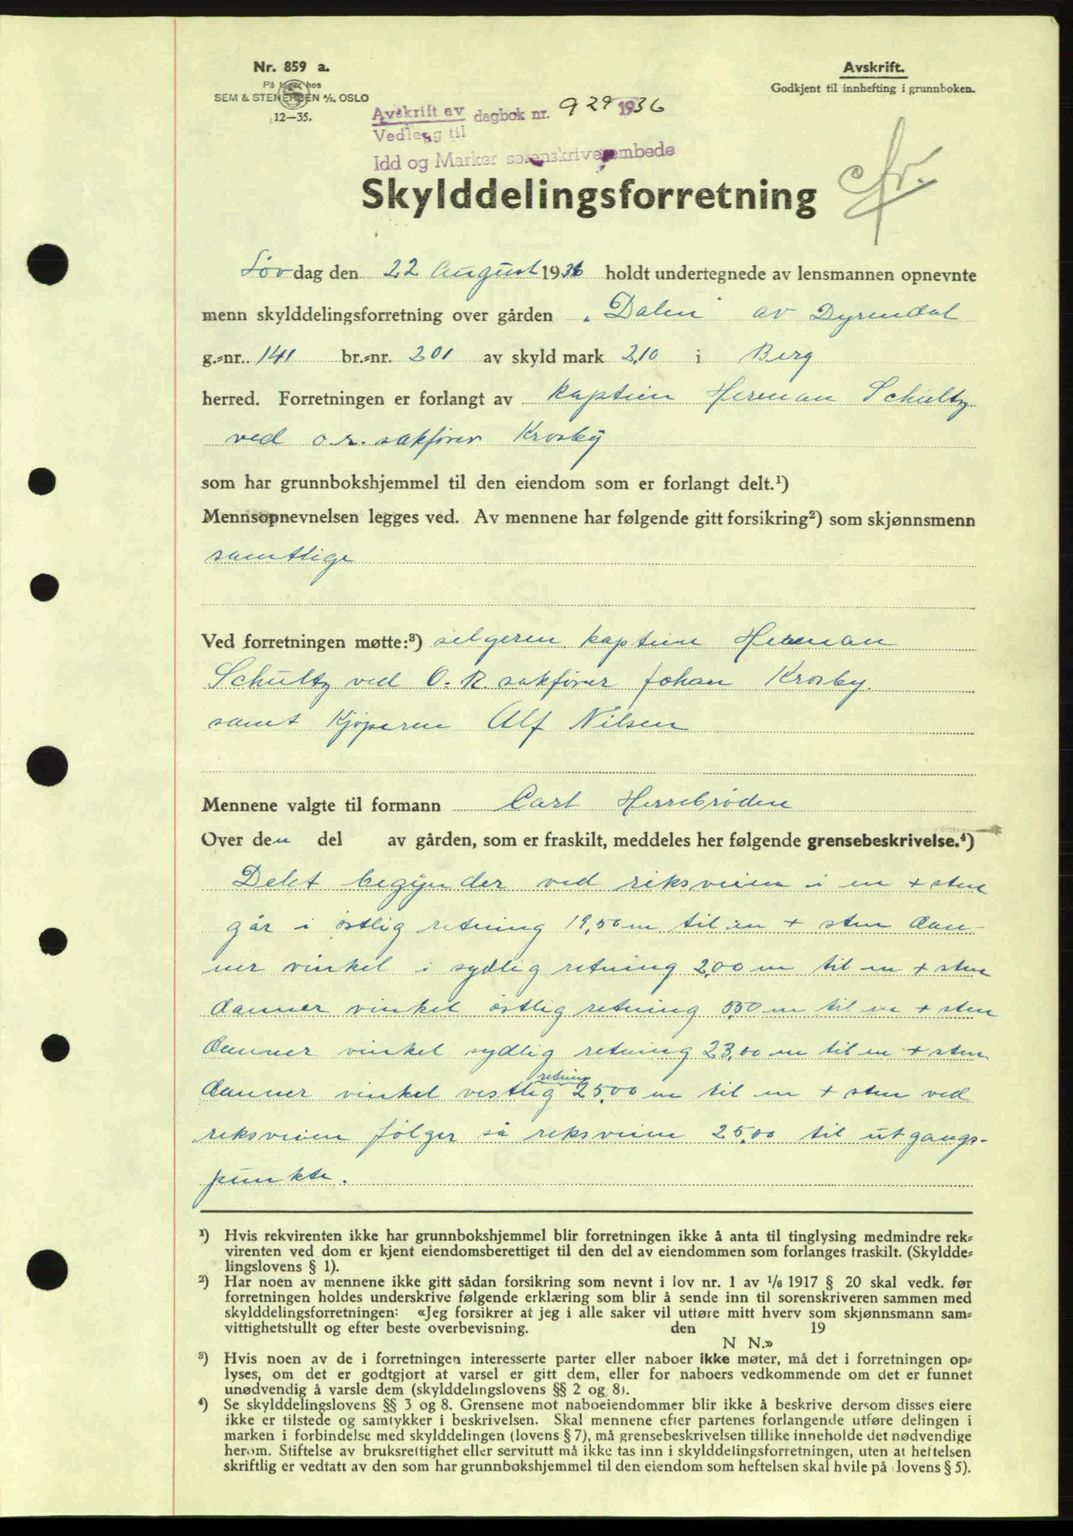 Nr. 859 a.
På lager hos
SEM & STENERSEN A/S, OSLO
12—35.
Avskrift.
Godkjent til innhefting i grunnboken.
Avskrift av dagbok nr. 929 1936
Vedlegg til
Idd og Marker sorenskriverembede
Skylddelingsforretning
Lørdag den 22 August 1936 holdt undertegnede av lensmannen opnevnte
menn skylddelingsforretning over gården „Dalen" av Dyrendal
g.=nr. 141 br.=nr. 201 av skyld mark 2,10 i Berg
herred. Forretningen er forlangt av kaptein Herman Schultz
ved o.r. sakfører Krosby
som har grunnbokshjemmel til den eiendom som er forlangt delt.¹)
Mennsopnevnelsen legges ved. Av mennene har følgende gitt forsikring²) som skjønnsmenn
samtlige
Ved forretningen møtte:³) selgeren kaptein Herman
Schultz ved O.R. sakfører Johan Krosby.
samt Kjøperen Alf Nilsen
Mennene valgte til formann Carl Herrebrøden
Over den del av gården, som er fraskilt, meddeles her følgende grensebeskrivelse.⁴)
Delet begynder ved riksveien i en + sten
går i östlig retning 19,50 m til en + sten dan-
ner vinkel i sydlig retning 2,00 m til en + sten
danner vinkel östlig retning 5,50 m til en + sten
danner vinkel sydlig retning 23,00 m til en + sten
danner vinkel vestlig retning 25,00 m til en + sten ved
reksveien følger så reksveien 25,00 til utgangs-
punkte.
¹) Hvis rekvirenten ikke har grunnbokshjemmel blir forretningen ikke å anta til tinglysing medmindre rek=
virenten ved dom er kjent eiendomsberettiget til den del av eiendommen som forlanges fraskilt. (Skyldde=
lingslovens § 1).
²) Har noen av mennene ikke gitt sådan forsikring som nevnt i lov nr. 1 av 1/6 1917 § 20 skal vedk. før
forretningen holdes underskrive følgende erklæring som blir å sende inn til sorenskriveren sammen med
skylddelingsforretningen: «Jeg forsikrer at jeg i alle saker vil utføre mitt hverv som skjønnsmann sam=
vittighetsfullt og efter beste overbevisning. den 19
N N.»
³) Hvis noen av de i forretningen interesserte parter eller naboer ikke møter, må det i forretningen op=
lyses, om det er godtgjort at varsel er gitt dem, eller for naboers vedkommende om det er funnet
unødvendig å varsle dem (skylddelingslovens §§ 2 og 8).
⁴) Se skylddelingslovens §§ 3 og 8. Grensene mot naboeiendommer blir ikke å beskrive dersom disses eiere
ikke er tilstede og samtykker i beskrivelsen. Skal mennene efter partenes forlangende utføre delingen i
marken i forbindelse med skylddelingen (lovens § 7), må grensebeskrivelsen tillike inneholde det nødvendige
herom. Stiftelse av bruksrettighet eller servitutt må ikke tas inn i skylddelingsforretningen, uten at heftelsen
skriftlig er vedtatt av den som har grunnbokshjemmel til den eiendom som heftelsen skal hvile på (lovens § 5).